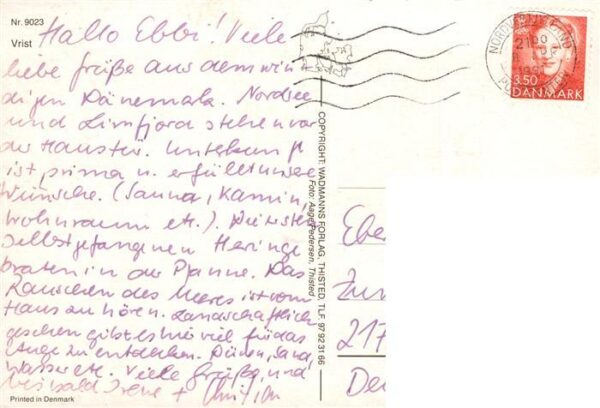 Nr. 9023
Vrist
Hallo Ebbi! Viele
liebe Grüße aus dem win
digen Dänemark. Nordsee
und Limfjord stehen vor
der Haustür. Unterkunft
ist prima u. erfüllt unsere
Wünsche. (Sauna, Kamin,
Wohnraum etc.). Die ersten
selbstgefangenen Heringe
braten in der Pfanne. Das
Rauschen des Meeres ist vom
Haus zu hören. Landschaftlich
gesehen gibt es hier viel für das
Auge zu entdecken. Dünen, Sand
Wasser etc. Viele Grüße, und
bis bald Irene +
Printed in Denmark
COPYRIGHT: WADMANNS FORLAG, THISTED, TLF. 97 92 31 66
Foto: Aage Pedersen, Thisted
3.50
DANMARK
Eber
Zur
217